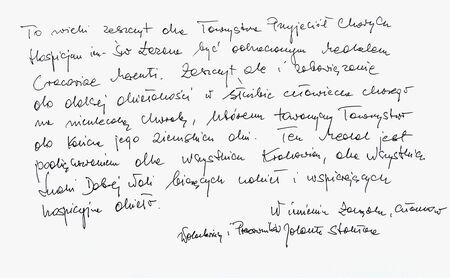 To wielki zaszczyt dla Towarzystwa Przyjaciół Chorych
Hospicjum im. Św Łazarza być odznaczonym Medalem
Cracoviae Merenti. Zaszczyt, ale i zobowiązanie
do dalszej działalności w służbie człowieka chorego
na nieuleczalną chorobę, któremu towarzyszy Towarzystwo
do końca jego ziemskich dni. Ten Medal jest
podziękowaniem dla wszystkich Krakowian, dla wszystkich
Ludzi Dobrej Woli biorących udział i wspierających
hospicyjne dzieło.
W imieniu Zarządu, Członków
Wolontariuszy i Pracowników Jolanta